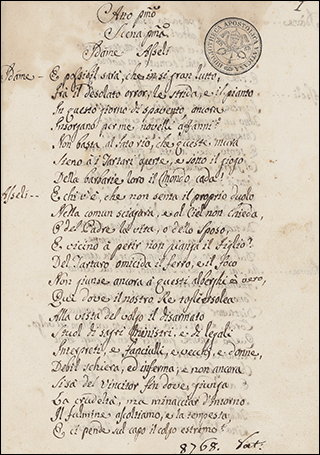 1
Atto pmo
Scena pma
Idame Asseli
Idame - E possibil sarà, che in si gran lutto,
Frà il desolato orror, le strida, e il pianto
In questo giorno di spavento, ancora
Insorgano per me novelli affanni?
Non basta al fato rio, che queste mura
Sieno à i Tartari aperte, e sotto il giogo
Della barbarie loro il Mondo cada!
Asseli - E chi v'è, che non senta il proprio duolo
Nella comun sciagura, e al Ciel non chieda,
O del Padre la vita, o dello Sposo,
E vicino à perir non pianga il Figlio?
Del Tartaro omicida il ferro, e il foco
Non giunse ancora à questi alberghi è vero,
Qua dove il nostro Re
Alla vista del volgo il disarmato
Stuol di sagri Ministri, e di legali
Interpreti, e Fanciulli, e vecchj, e donne,
Debil schiera, ed inferma; e non ancora
Si sà del Vincitor fin dove giunga
La crudeltà, ma minacciar d'intorno
Il fulmine ascoltiamo, e la tempesta,
E ci pende sul capo il colpo estremo!
8768. Vat.
BIBLIOTHECA APOSTOLICA VATICANA